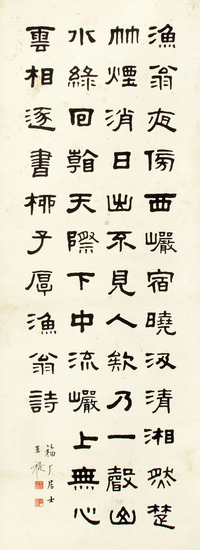 漁翁夜傍西巖宿曉汲清湘然楚
竹煙消日出不見人欸乃一聲山
水綠回看天際下中流巖上無心
雲相逐書柳子厚漁翁詩
福厂居士
王禔